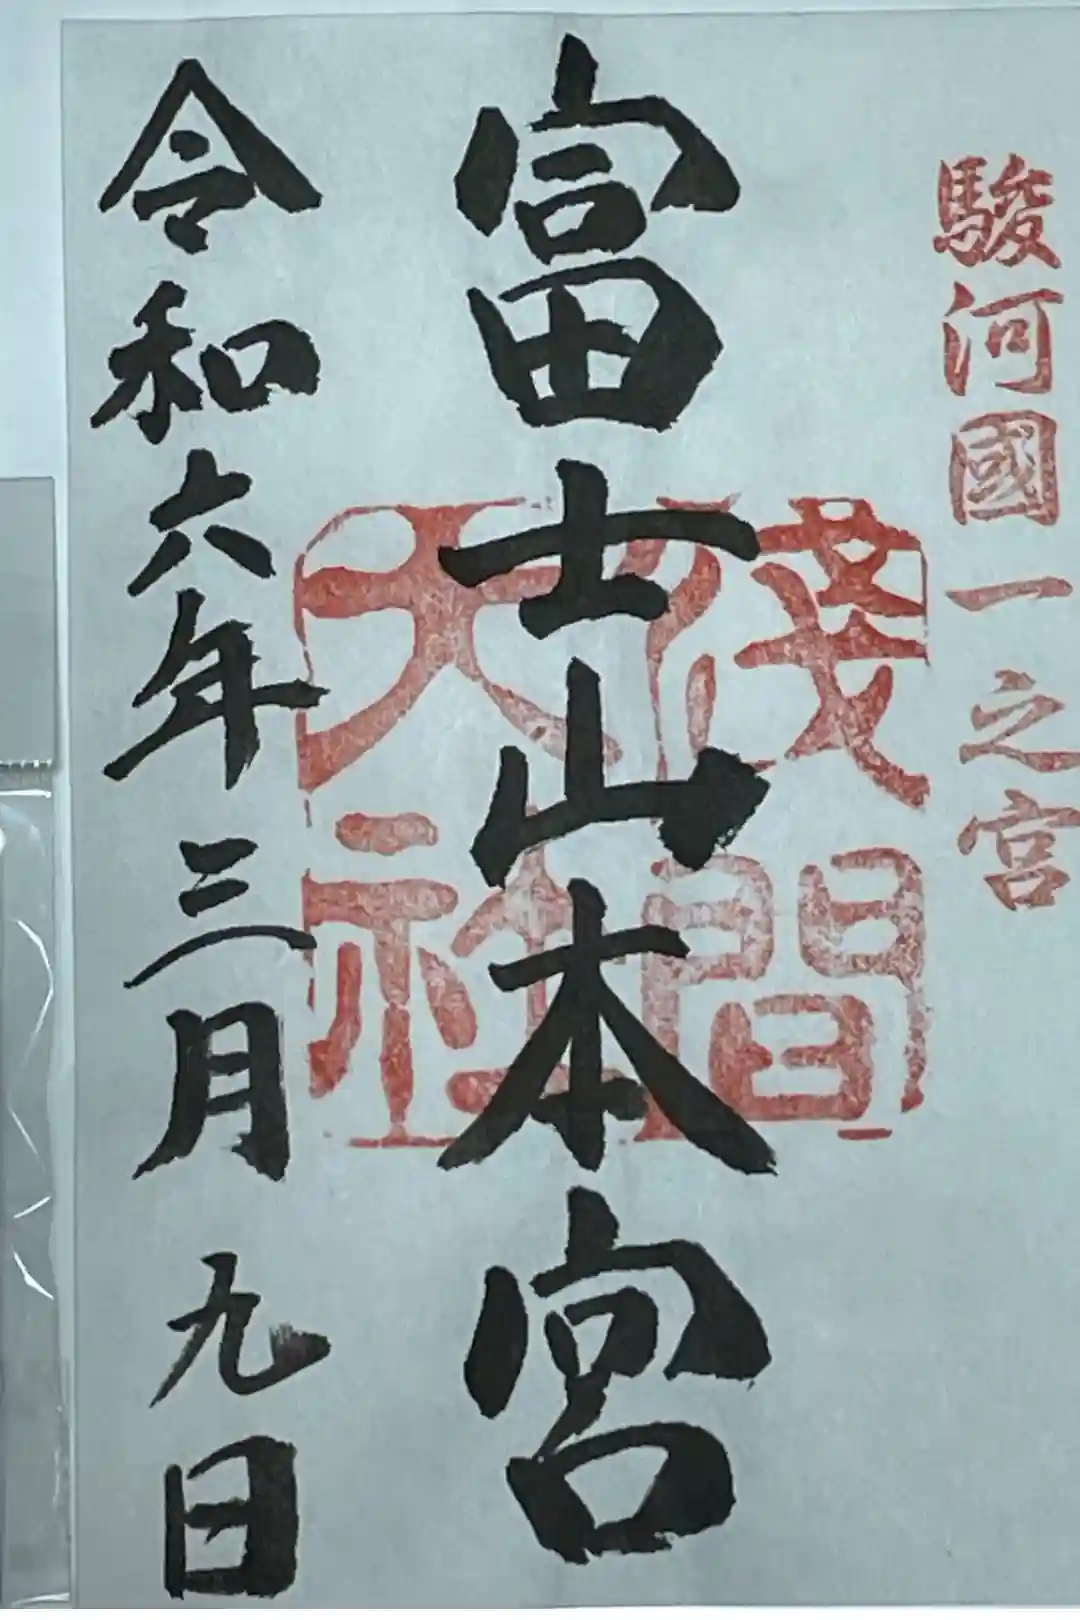 駿河國一之宮
富士山本宮
淺間大社
令和六年三月九日